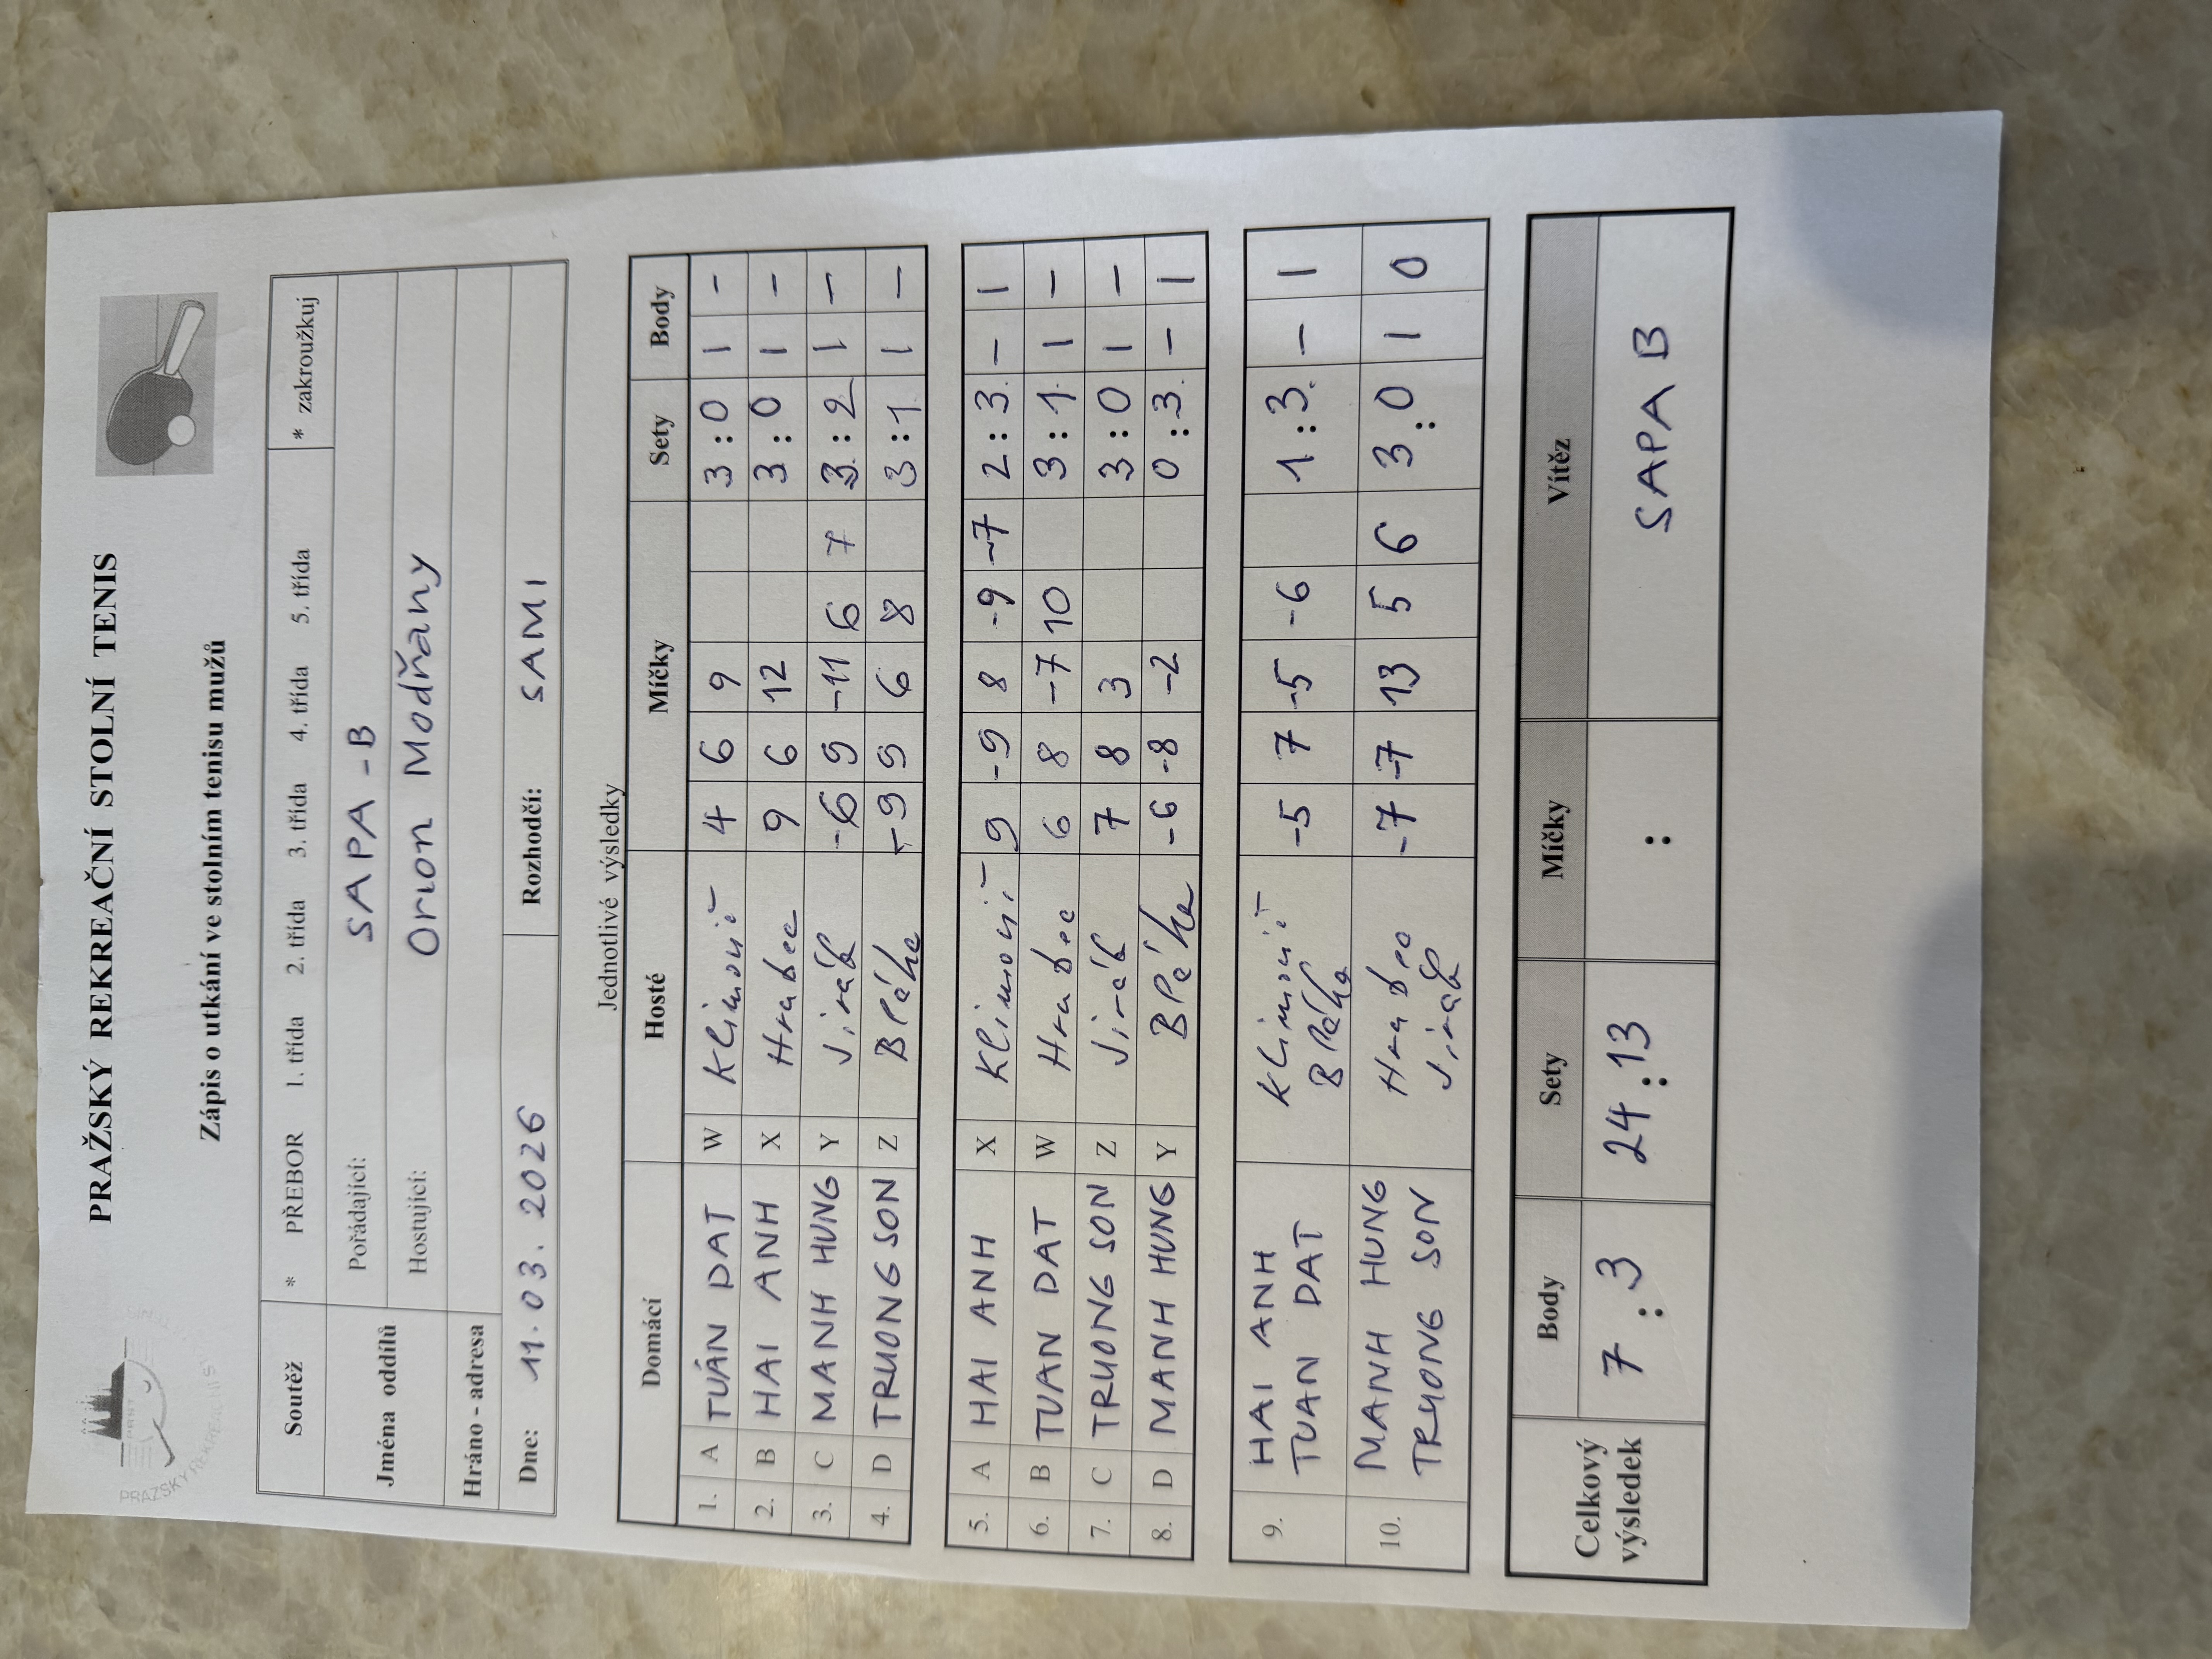 PRAŽSKÝ REKREAČNÍ STOLNÍ TENIS
Zápis o utkání ve stolním tenisu mužů
Soutěž * PŘEBOR 1. třída 2. třída 3. třída 4. třída 5. třída * zakroužkuj
Jména oddílů Pořádající: SAPA-B
Hostující: Orion Modřany
Hráno - adresa
Dne: 11.03.2026 Rozhodčí: SAMI
Jednotlivé výsledky
Domácí Hosté Míčky Sety Body
1. A TUÁN DAT W Klimovič 4 6 9 3:0 1 -
2. B HAI ANH X Hrabec 9 6 12 3:0 1 -
3. C MANH HUNG Y Jirák -6 9 -11 6 7 3:2 1 -
4. D TRUONG SON Z Bláha -9 9 6 8 3:1 1 -
5. A HAI ANH X Klimovič 9 -9 8 -9 -7 2:3 - 1
6. B TUAN DAT W Hrabec 6 8 -7 10 3:1 1 -
7. C TRUONG SON Z Jirák 7 8 3 3:0 1 -
8. D MANH HUNG Y Bláha -6 -8 -2 0:3 - 1
9. HAI ANH Klimovič -5 7 -5 -6 1:3 - 1
TUAN DAT Bláha
10. MANH HUNG Hrabec -7 -7 13 5 6 3:0 1 0
TRUONG SON Jirák
Celkový výsledek Body Sety Míčky Vítěz
7:3 24:13 : SAPA B